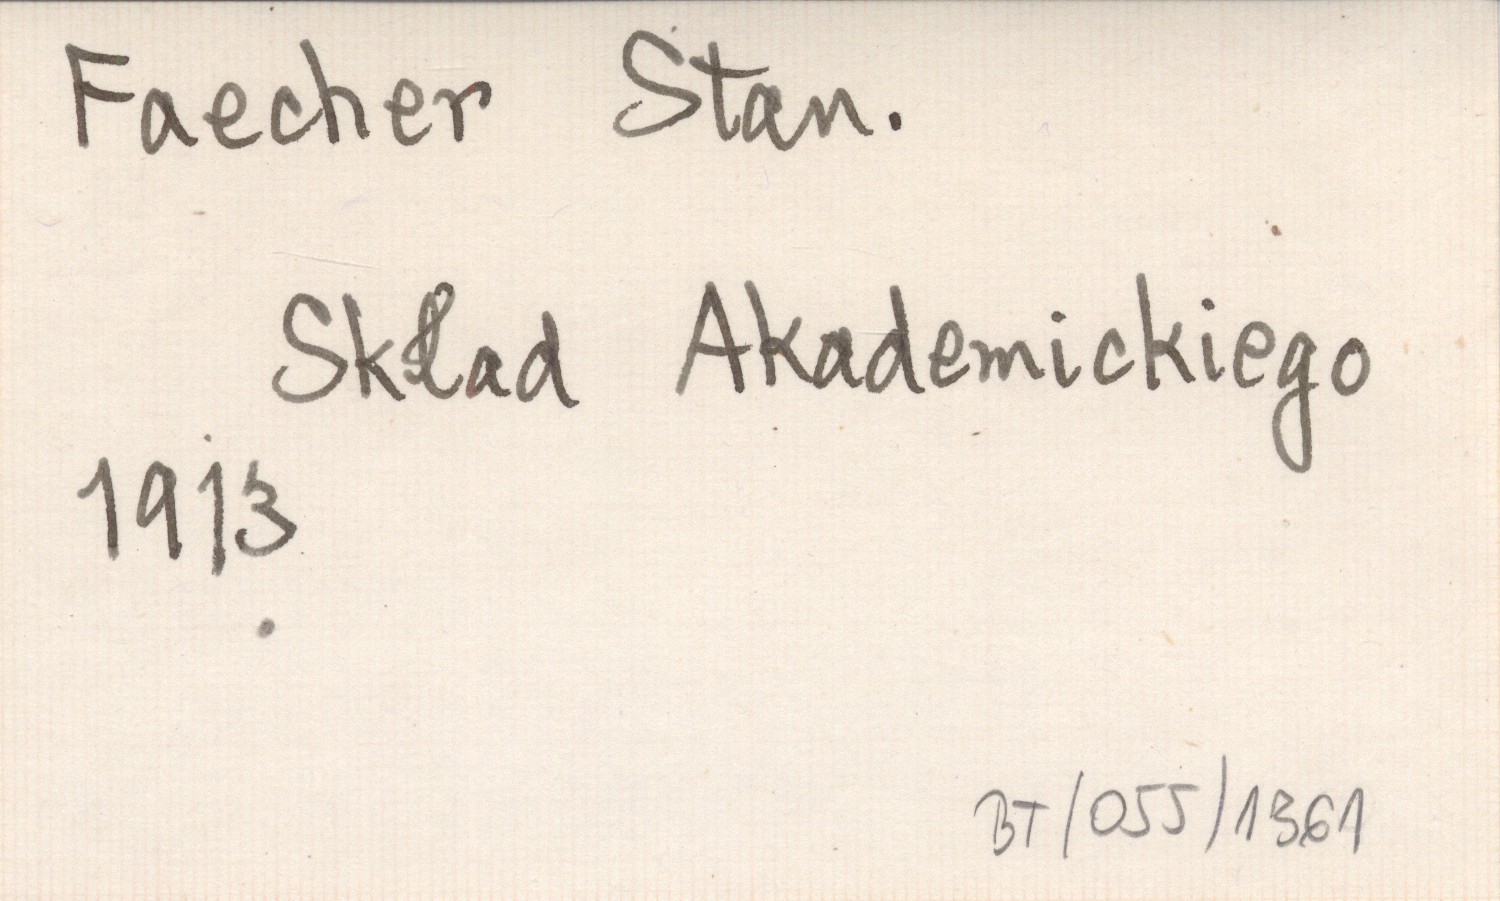 Faecher Stan.
Skład Akademickiego
1913
BT/055/1361